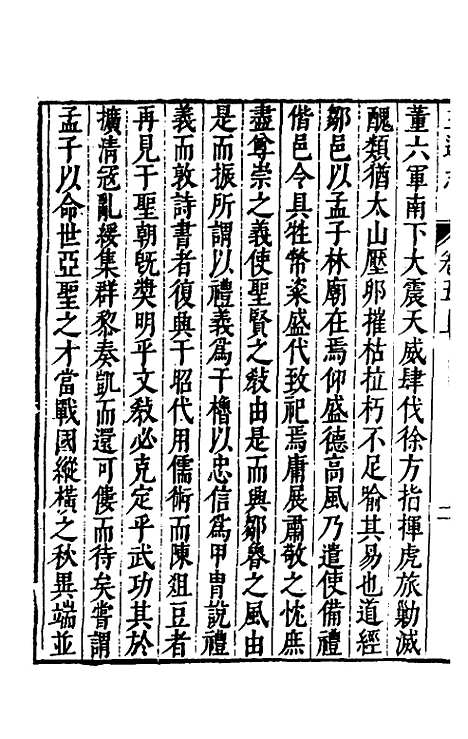 董六軍南下大震天威肆伐徐方指揮虎旅勦滅
醜類猶太山壓卵摧枯拉朽不足喻其易也道經
鄒邑以孟子林廟在焉仰盛德高風乃遣使備禮
偕邑令具牲幣粢盛代致祀焉庸展肅敬之忱庶
盡尊崇之義使聖賢之敎由是而興鄒魯之風由
是而振所謂以禮義爲干櫓以忠信爲甲冑說禮
義而敦詩書者復興于昭代用儒術而陳俎豆者
再見于聖朝旣奬明乎文敎必克定乎武功其於
擴清寇亂綏集群黎奏凱而還可僂而待矣嘗謂
孟子以命世亞聖之才當戰國縱橫之秋異端並